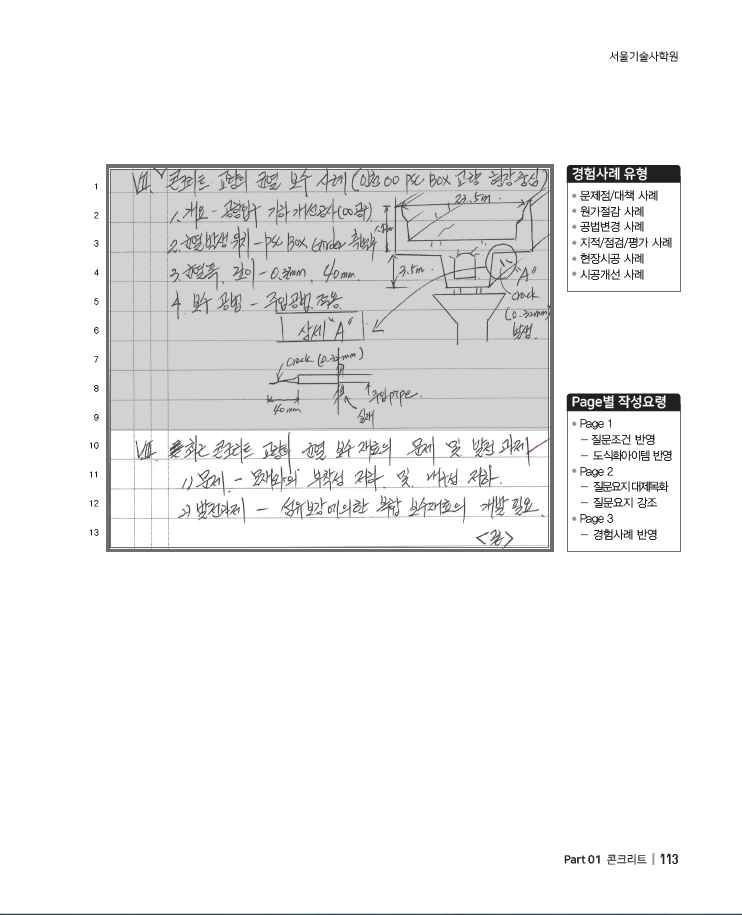 서울기술사학원
1
Ⅶ. 콘크리트 교량의 균열 보수 사례 (인천 00 PSC BOX 교량 현장 중심)
2
1. 개요 -
23.5m
3
2. 균열발생 위치 - PSC BOX Girder
4
3. 균열폭, 깊이 - 0.32mm, 40mm.
3.5m.
"A"
5
4. 보수 공법 - 주입공법 적용.
crack
(0.32mm)
발생.
6
상세 "A"
7
crack (0.32mm)
8
주입 pipe.
40mm
실재
9
10
Ⅷ. 최근 콘크리트 교량의 균열 보수재료의 문제 및 발전과제
11
1) 문제 - 모재와의 부착성 저하 및 내구성 저하.
12
2) 발전과제 - 섬유보강에 의한 복합 보수재료의 개발 필요.
13
<끝>
경험사례 유형
• 문제점/대책 사례
• 원가절감 사례
• 공법변경 사례
• 지적/점검/평가 사례
• 현장시공 사례
• 시공개선 사례
Page별 작성요령
• Page 1
– 질문조건 반영
– 도식화아이템 반영
• Page 2
– 질문요지 대제목화
– 질문요지 강조
• Page 3
– 경험사례 반영
Part 01 콘크리트 | 113